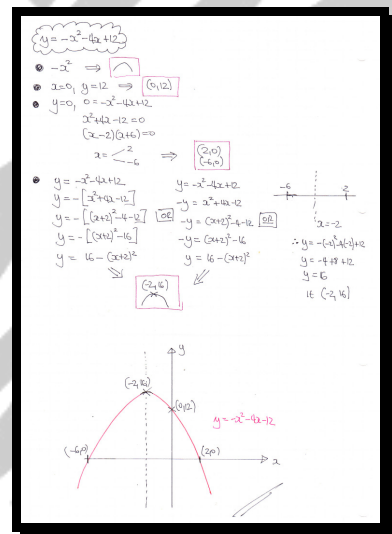 y = -x²-4x+12
-x² ⇒
x=0, y=12 ⇒ (0,12)
y=0, 0=-x²-4x+12
x²+4x-12=0
(x-2)(x+6)=0
x= 2
-6
⇒ (2,0)
(-6,0)
y = -x²-4x+12
y = -[x²+4x-12]
y = -[(x+2)²-4-12]
y = -[(x+2)²-16]
y = 16-(x+2)²
OR
y = -x²-4x+12
-y = x²+4x-12
-y = (x+2)²-4-12
-y = (x+2)²-16
y = 16-(x+2)²
OR
-6 2
x=-2
∴ y=-(-2)²-4(-2)+12
y = -4+8+12
y = 16
IE (-2,16)
(-2,16)
y
(-2,16)
(0,12)
y=-x²-4x-12
(-6,0)
(2,0)
x